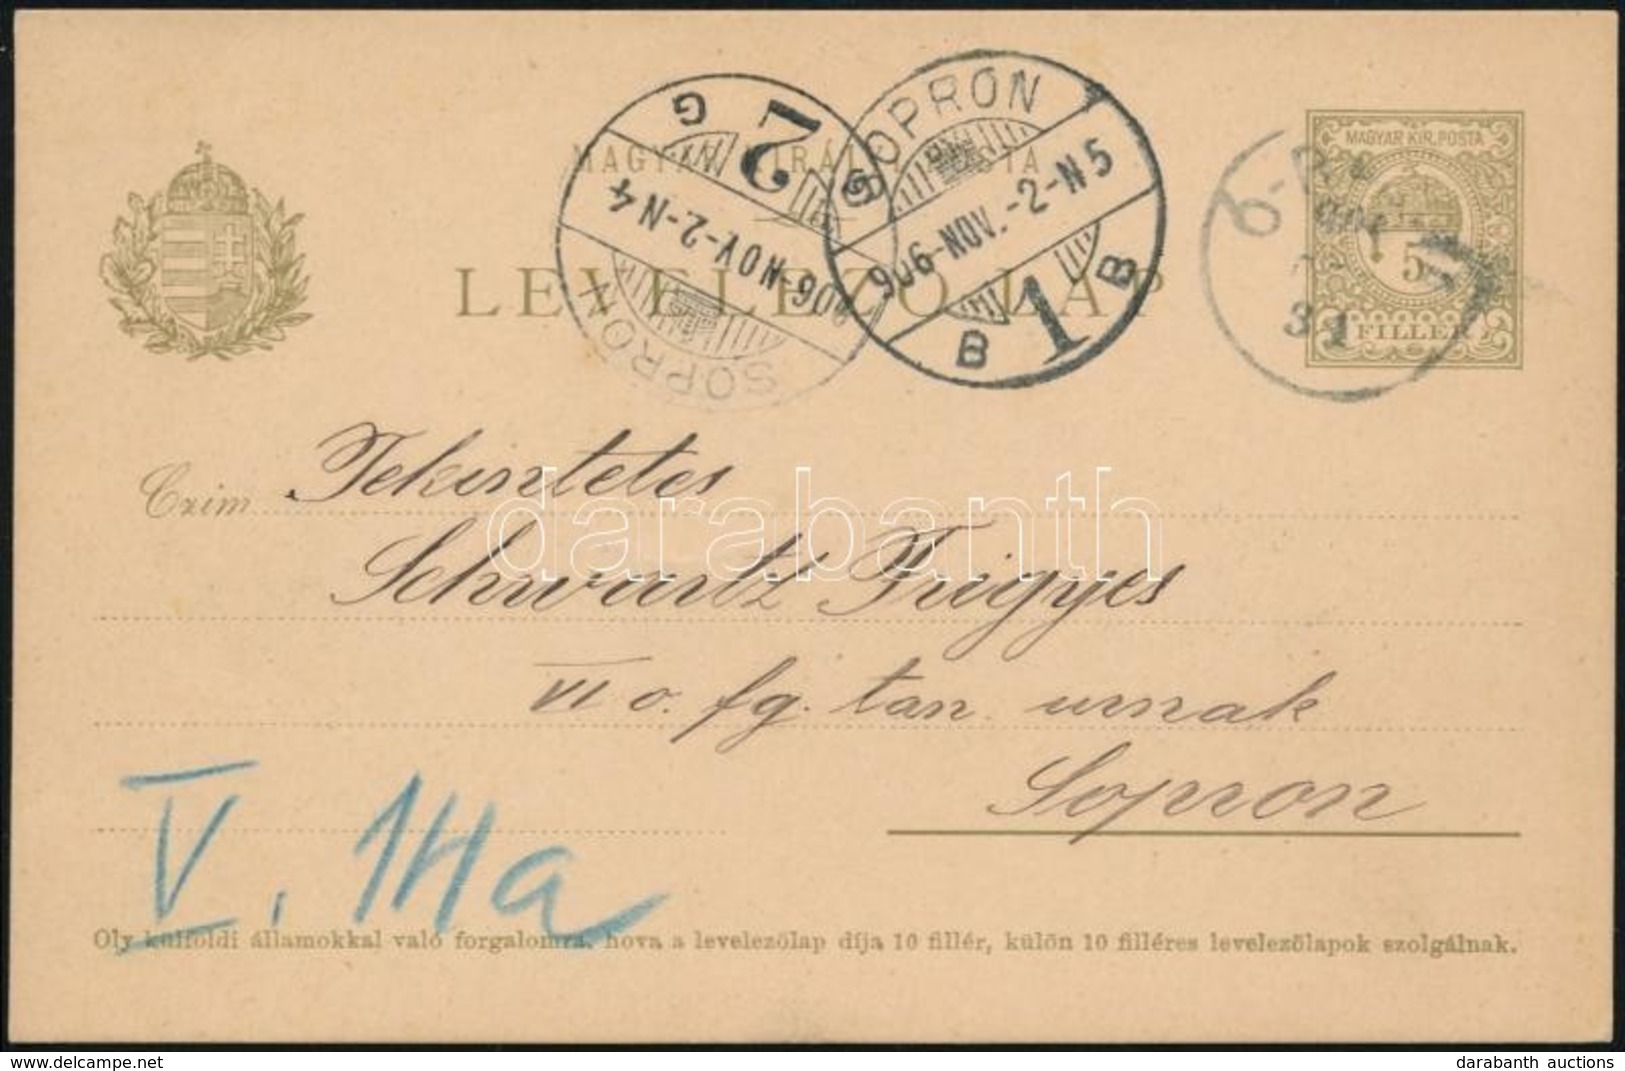 MAGYAR KIR. POSTA
5
FILLÉR
SOPRON
906-NOV.-2-N5
B 1 B
SOPRON
906-NOV-2-N4
G 2 G
31
LEVELEZŐ LAP
Czim Tekintetes
Schwartz Frigyes
VI o. fg. tan. urnak
Sopron
V. 14a
Oly külföldi államokkal való forgalomra, hova a levelezőlap díja 10 fillér, külön 10 filléres levelezőlapok szolgálnak.
darabanth
darabanth auctions